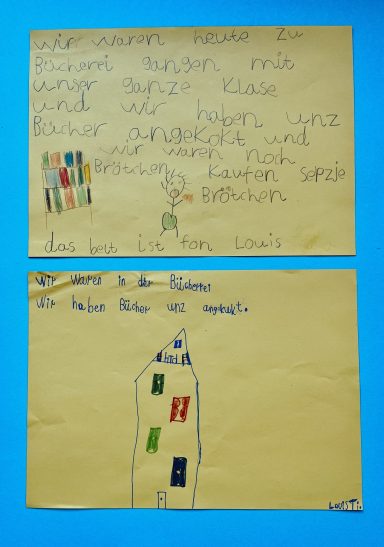 wir waren heute zu
Bücherei gangen mit
unser ganze Klase
und wir haben unz
Bücher angekokt und
wir waren noch
Brötchen kaufen sepzje
Brötchen
das belt ist fon Louis
Wir Waren in der Bücherrei
Wir haben Bücher unz angekukt.
LOUIS T.